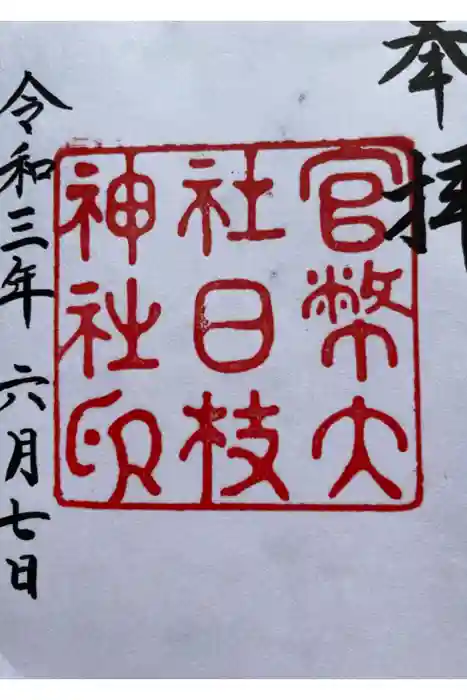 奉拝
官幣大
社日枝
神社印
令和三年 六月七日